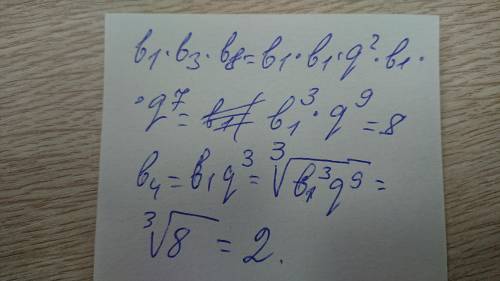 b₁·b₃·b₈=b₁·b₁·q²·b₁·
·q⁷= b₁³·q⁹=8
b₄=b₁q³=∛(b₁³q⁹)=
∛8 = 2.